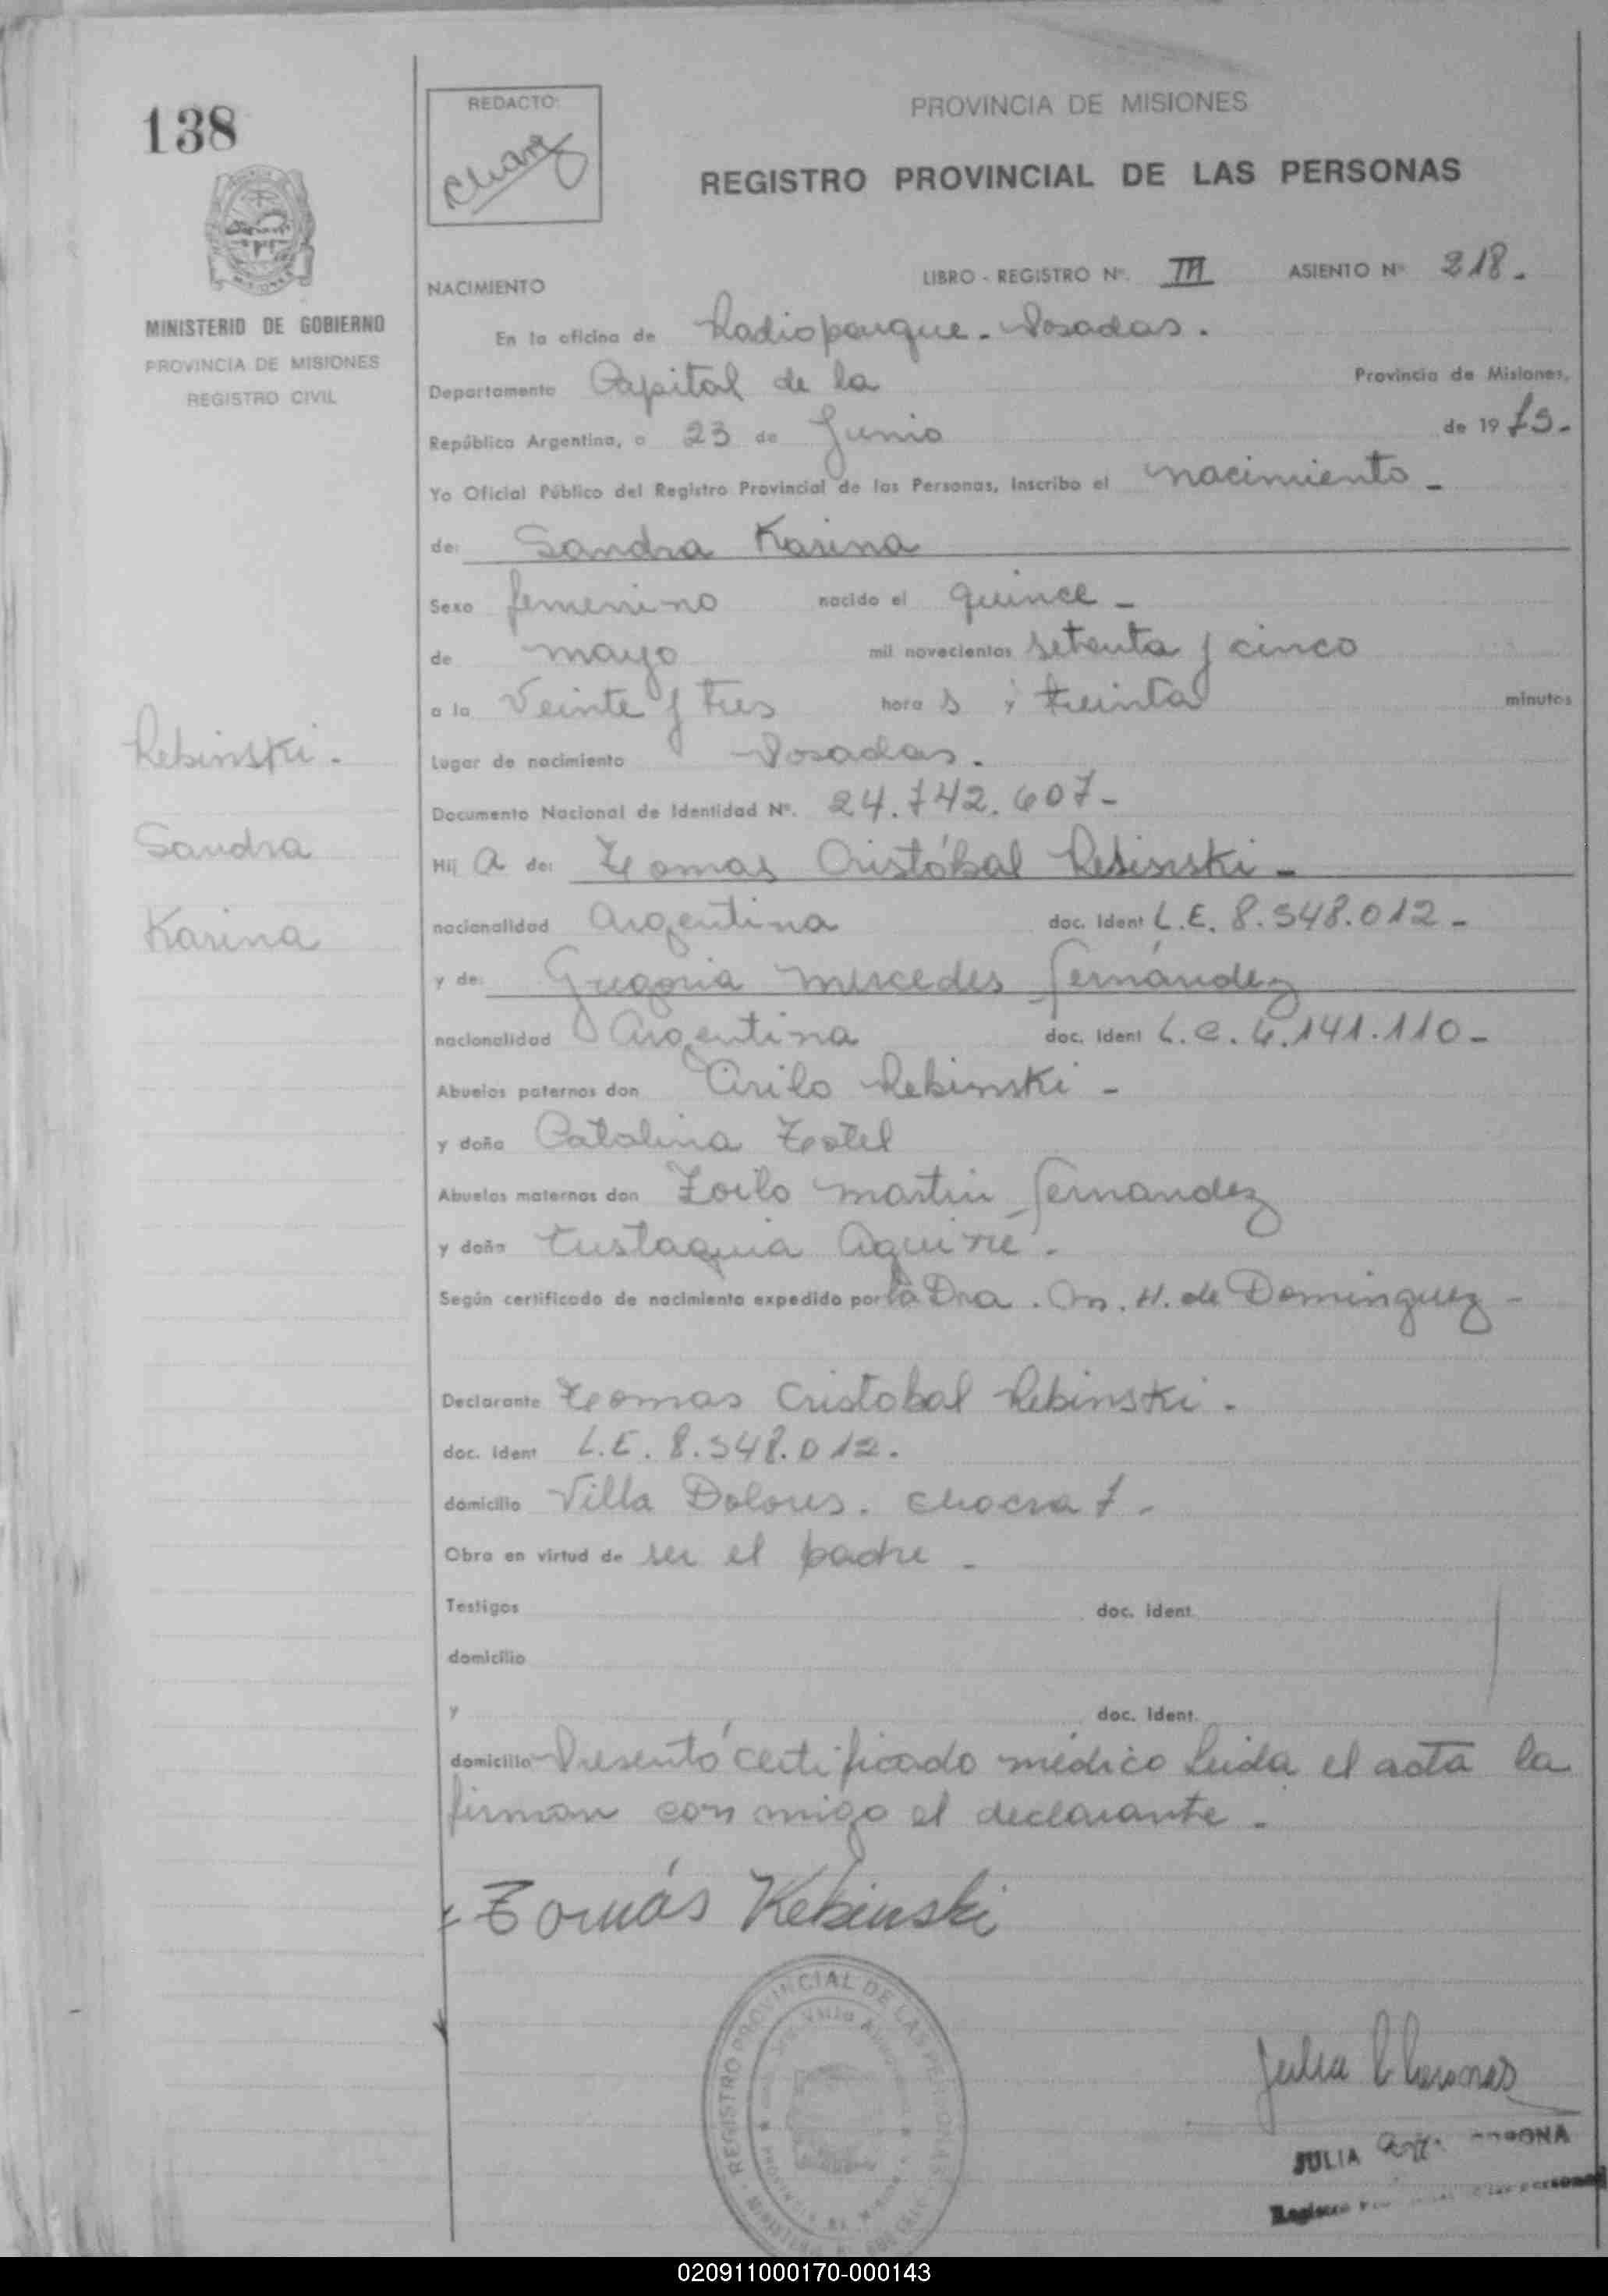 138
REDACTO:
PROVINCIA DE MISIONES
REGISTRO PROVINCIAL DE LAS PERSONAS
MINISTERIO DE GOBIERNO
PROVINCIA DE MISIONES
REGISTRO CIVIL
NACIMIENTO
LIBRO - REGISTRO Nº. III ASIENTO Nº 218.
En la oficina de Radioparque - Posadas.
Departamento Capital de la Provincia de Misiones,
República Argentina, a 23 de Junio de 1975.
Yo Oficial Público del Registro Provincial de las Personas, Inscribo el nacimiento -
de: Sandra Karina
Sexo femenino nacido el quince -
de mayo mil novecientos setenta y cinco
a la Veinte y tres hora s y treinta minutos
Lugar de nacimiento Posadas.
Documento Nacional de Identidad Nº. 24.742.607-
Rebinski.
Sandra
Karina
Hij a de: Tomas Cristóbal Rebinski -
nacionalidad Argentina doc. Ident L.E. 8.548.012-
y de: Gregoria mercedes Fernández
nacionalidad Argentina doc. Ident L.C. 6.141.110-
Abuelos paternos don Cirilo Rebinski -
y doña Catalina
Abuelos maternos don Zoilo martin Fernandez
y doña Eustaquia Aguirre.
Según certificado de nacimiento expedido por la Dra. M. H. de Dominguez -
Declarante Tomas Cristobal Rebinski.
doc. Ident L.E. 8.548.012.
domicilio Villa Dolores. chacra 7-
Obra en virtud de ser el padre -
Testigos doc. Ident.
domicilio
y doc. Ident.
domicilio Presentó certificado médico Leida el acta la
firman con migo el declarante.
Tomás Rebinski
REGISTRO PROVINCIAL DE LAS PERSONAS
JULIA
Registro
020911000170-000143